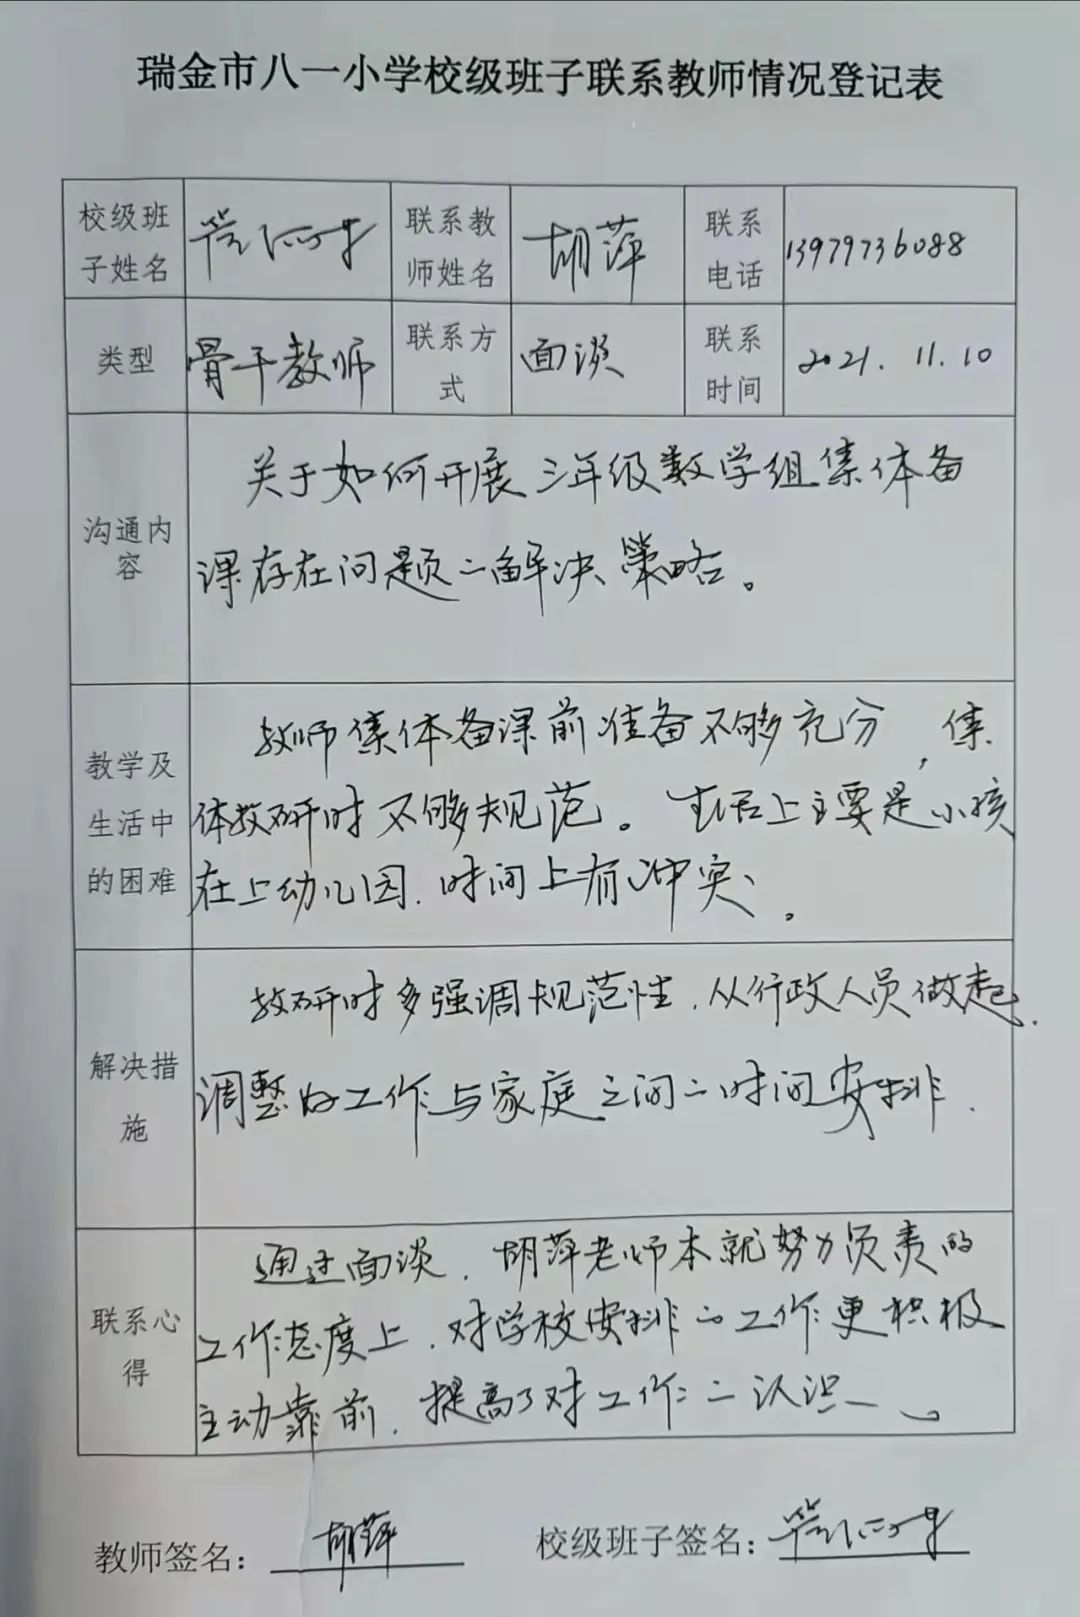 瑞金市八一小学校级班子联系教师情况登记表
校级班 联系教 联系
子姓名 师姓名 胡萍 电话 13979736088
类型 骨干教师 联系方 面谈 联系 2021.11.10
式 时间
关于如何开展三年级数学组集体备
沟通内
容
课存在问题的解决策略。
教师集体备课前准备不够充分,集
教学及
生活中 体教研时不够规范。生活上主要是小孩
的困难 在上幼儿园.时间上有冲突、。
教研时多强调规范性.从行政人员做起.
解决措
施
调整好工作与家庭之间的时间安排.
通过面谈.胡萍老师本就努力负责的
联系心 工作态度上.对学校安排的工作更积极
得
主动靠前.提高了对工作的认识。
教师签名: 胡萍 校级班子签名: